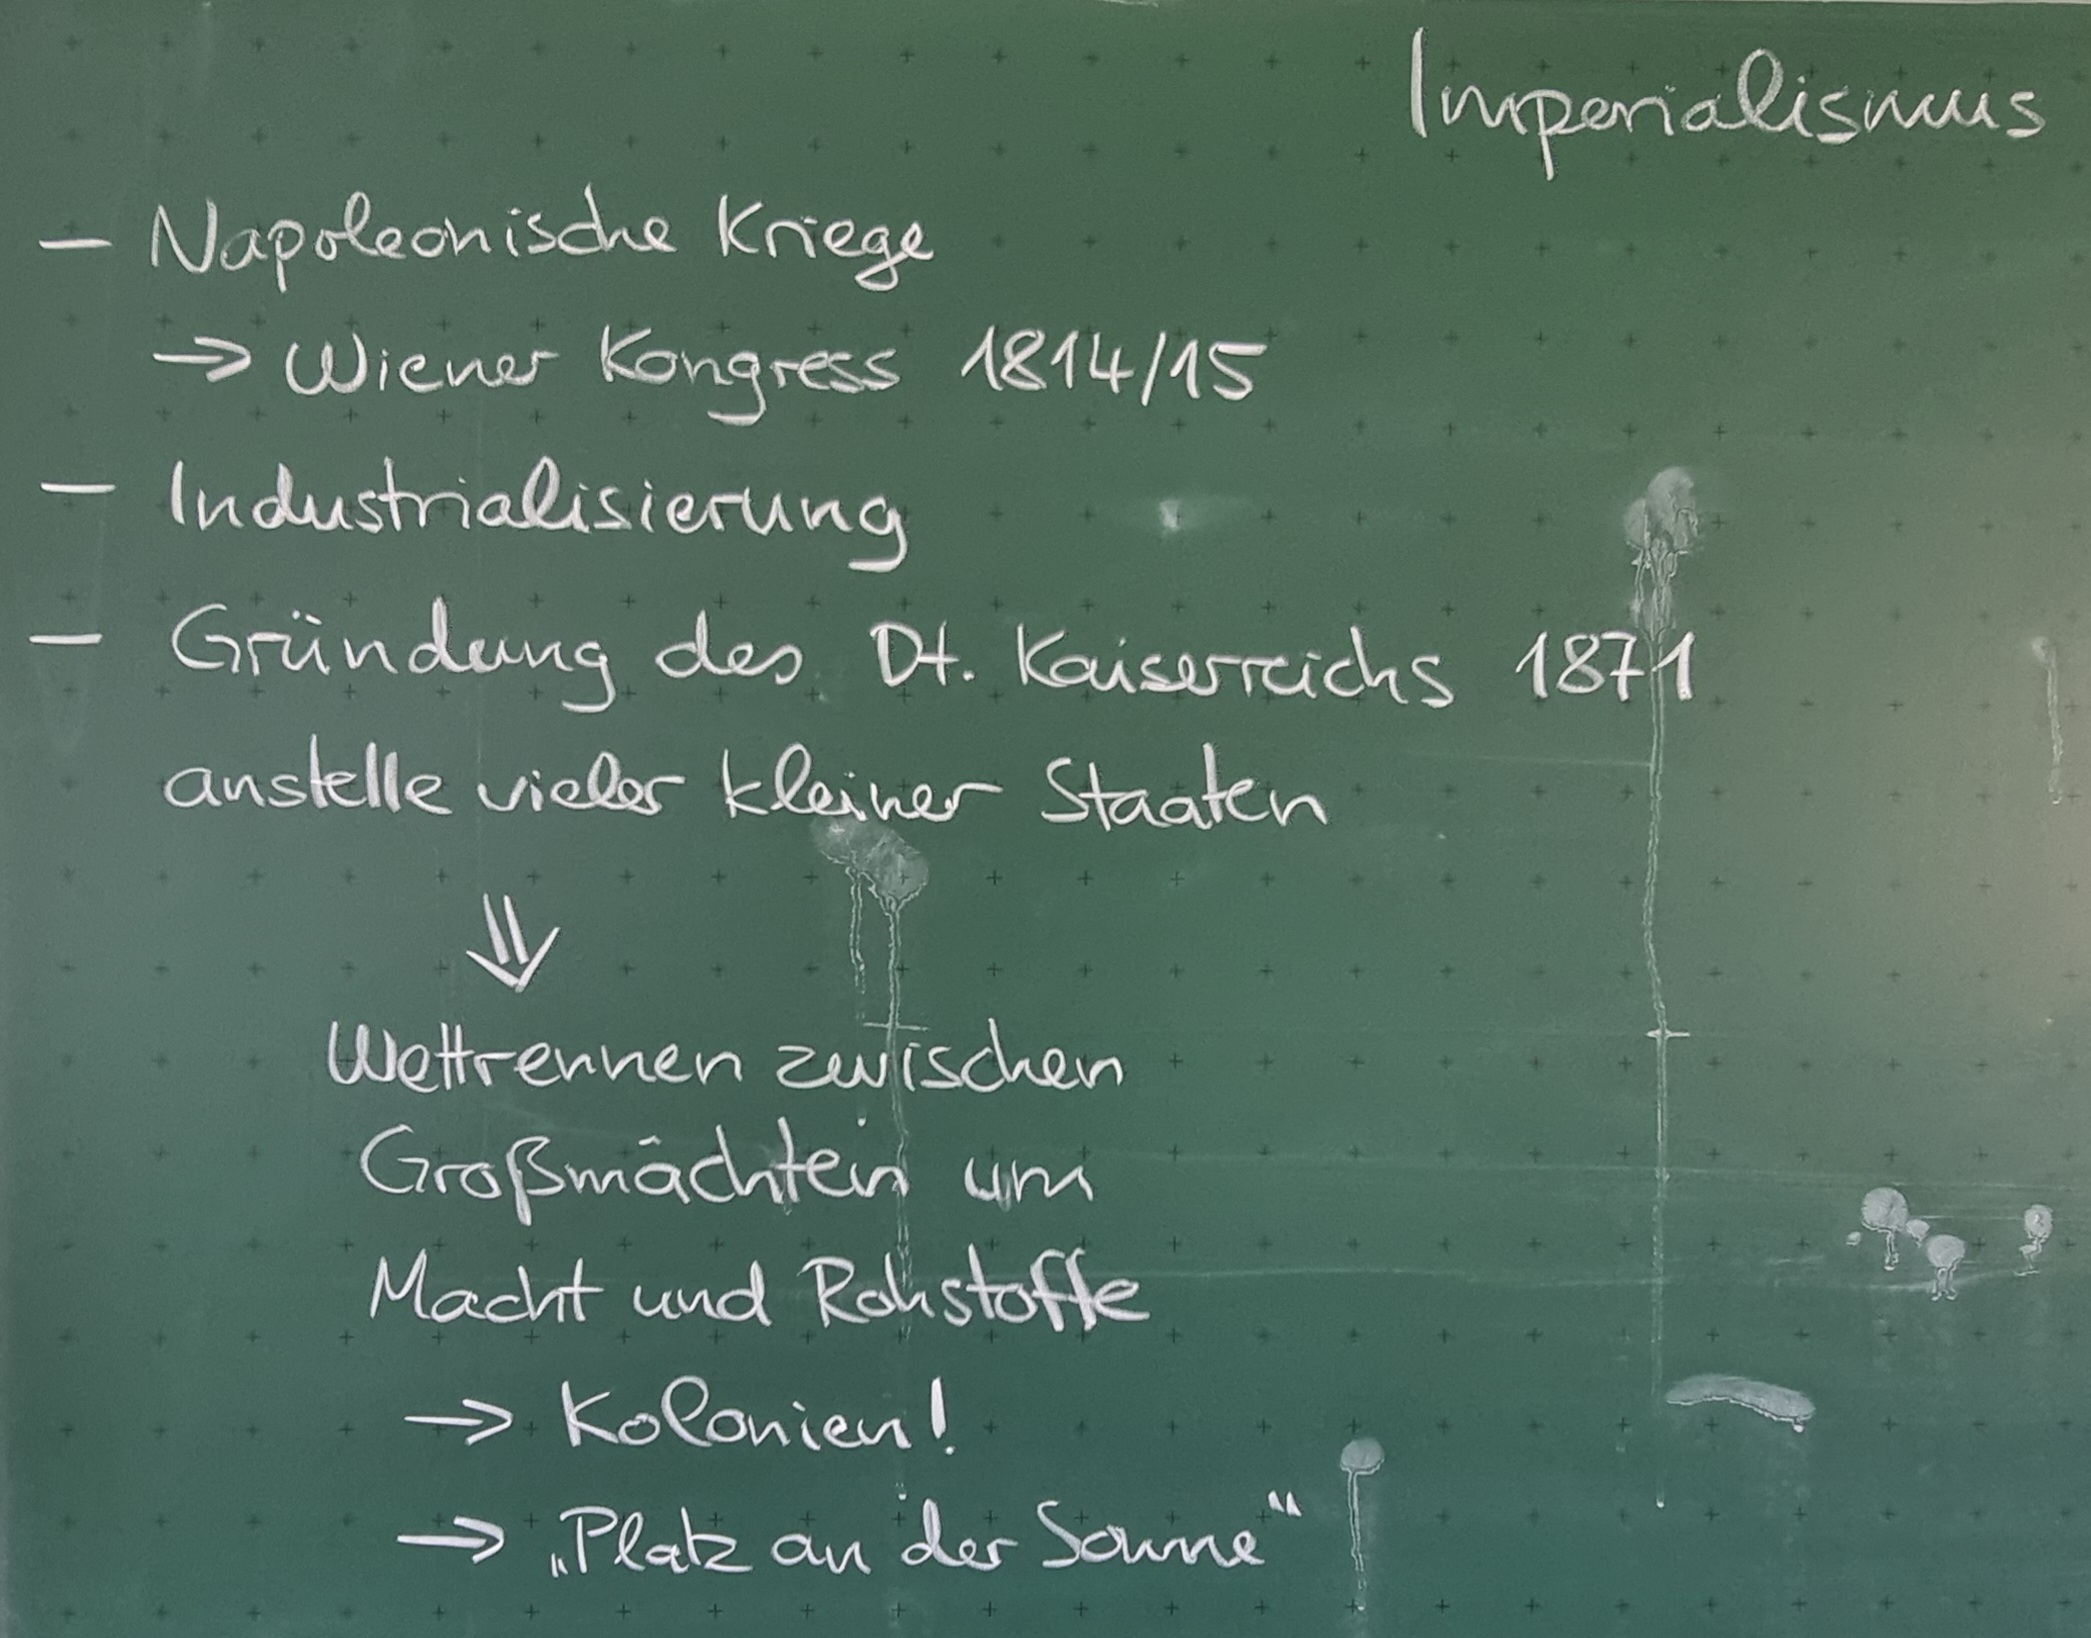 Imperialismus
– Napoleonische Kriege
→ Wiener Kongress 1814/15
– Industrialisierung
– Gründung des Dt. Kaiserreichs 1871
anstelle vieler kleiner Staaten
⇓
Wettrennen zwischen
Großmächten um
Macht und Rohstoffe
→ Kolonien!
→ „Platz an der Sonne“